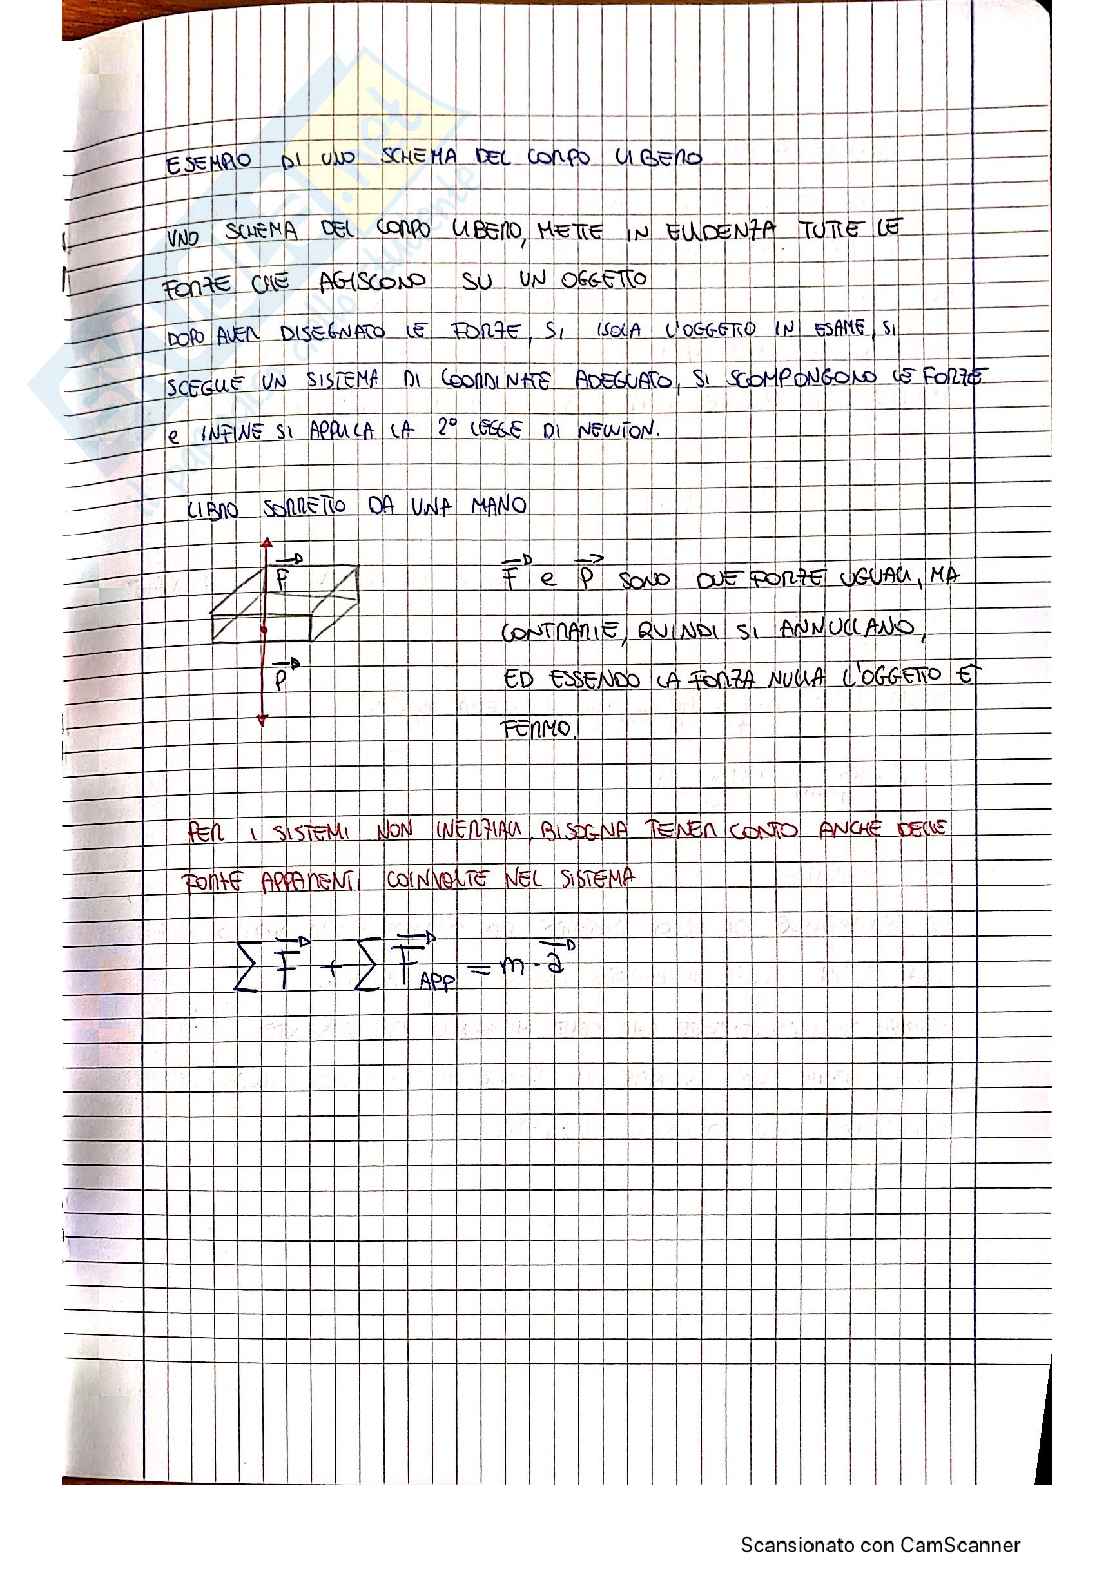 ESEMPIO DI UNO SCHEMA DEL CORPO LIBERO
UNO SCHEMA DEL CORPO LIBERO, METTE IN EVIDENZA TUTTE LE
FORZE CHE AGISCONO SU UN OGGETTO
DOPO AVER DISEGNATO LE FORZE, SI ISOLA L'OGGETTO IN ESAME, SI
SCEGLIE UN SISTEMA DI COORDINATE ADEGUATO, SI SCOMPONGONO LE FORZE
e INFINE SI APPLICA LA 2° LEGGE DI NEWTON.
LIBRO SORRETTO DA UNA MANO
F
P
F e P SONO DUE FORZE UGUALI, MA
CONTRARIE, QUINDI SI ANNULLANO,
ED ESSENDO LA FORZA NULLA L'OGGETTO È
FERMO.
PER I SISTEMI NON INERZIALI, BISOGNA TENER CONTO ANCHE DELLE
FORZE APPARENTI COINVOLTE NEL SISTEMA
∑ F + ∑ F APP = m · a
Scansionato con CamScanner